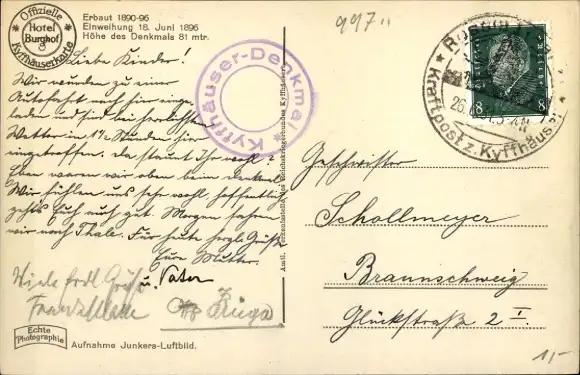 Offizielle
Hotel
Burghof
8
Kyffhäuserkarte
Erbaut 1890-96
Einweihung 18. Juni 1896
Höhe des Denkmals 81 mtr.
997
Liebe Kinder!
Wir wurden zu einer
Autofahrt nach hier einge-
laden und sind bei herrlichstem
Wetter in 1½ Stunden hier
eingetroffen. da staunt Ihr wohl?
Eben waren wir oben beim denkmal
Wir fühlen uns sehr wohl, hoffentlich
gehts Euch auch gut. Morgen fahren
wir nach Thale. Für heute herzl. Grüße
Eure Mutter.
u. Vater
Viele frdl. Grüße
Otto Krüger
Kyffhäuser-Denkmal
Amtl. Verkaufsstelle des Reichskriegerbundes Kyffhäuser
Kraftpost z. Kyffhäuser
26.
8 8
Geschwister
Schollmeyer
Braunschweig
Glückstraße 2 I.
Echte
Photographie
Aufnahme Junkers-Luftbild.
11,-